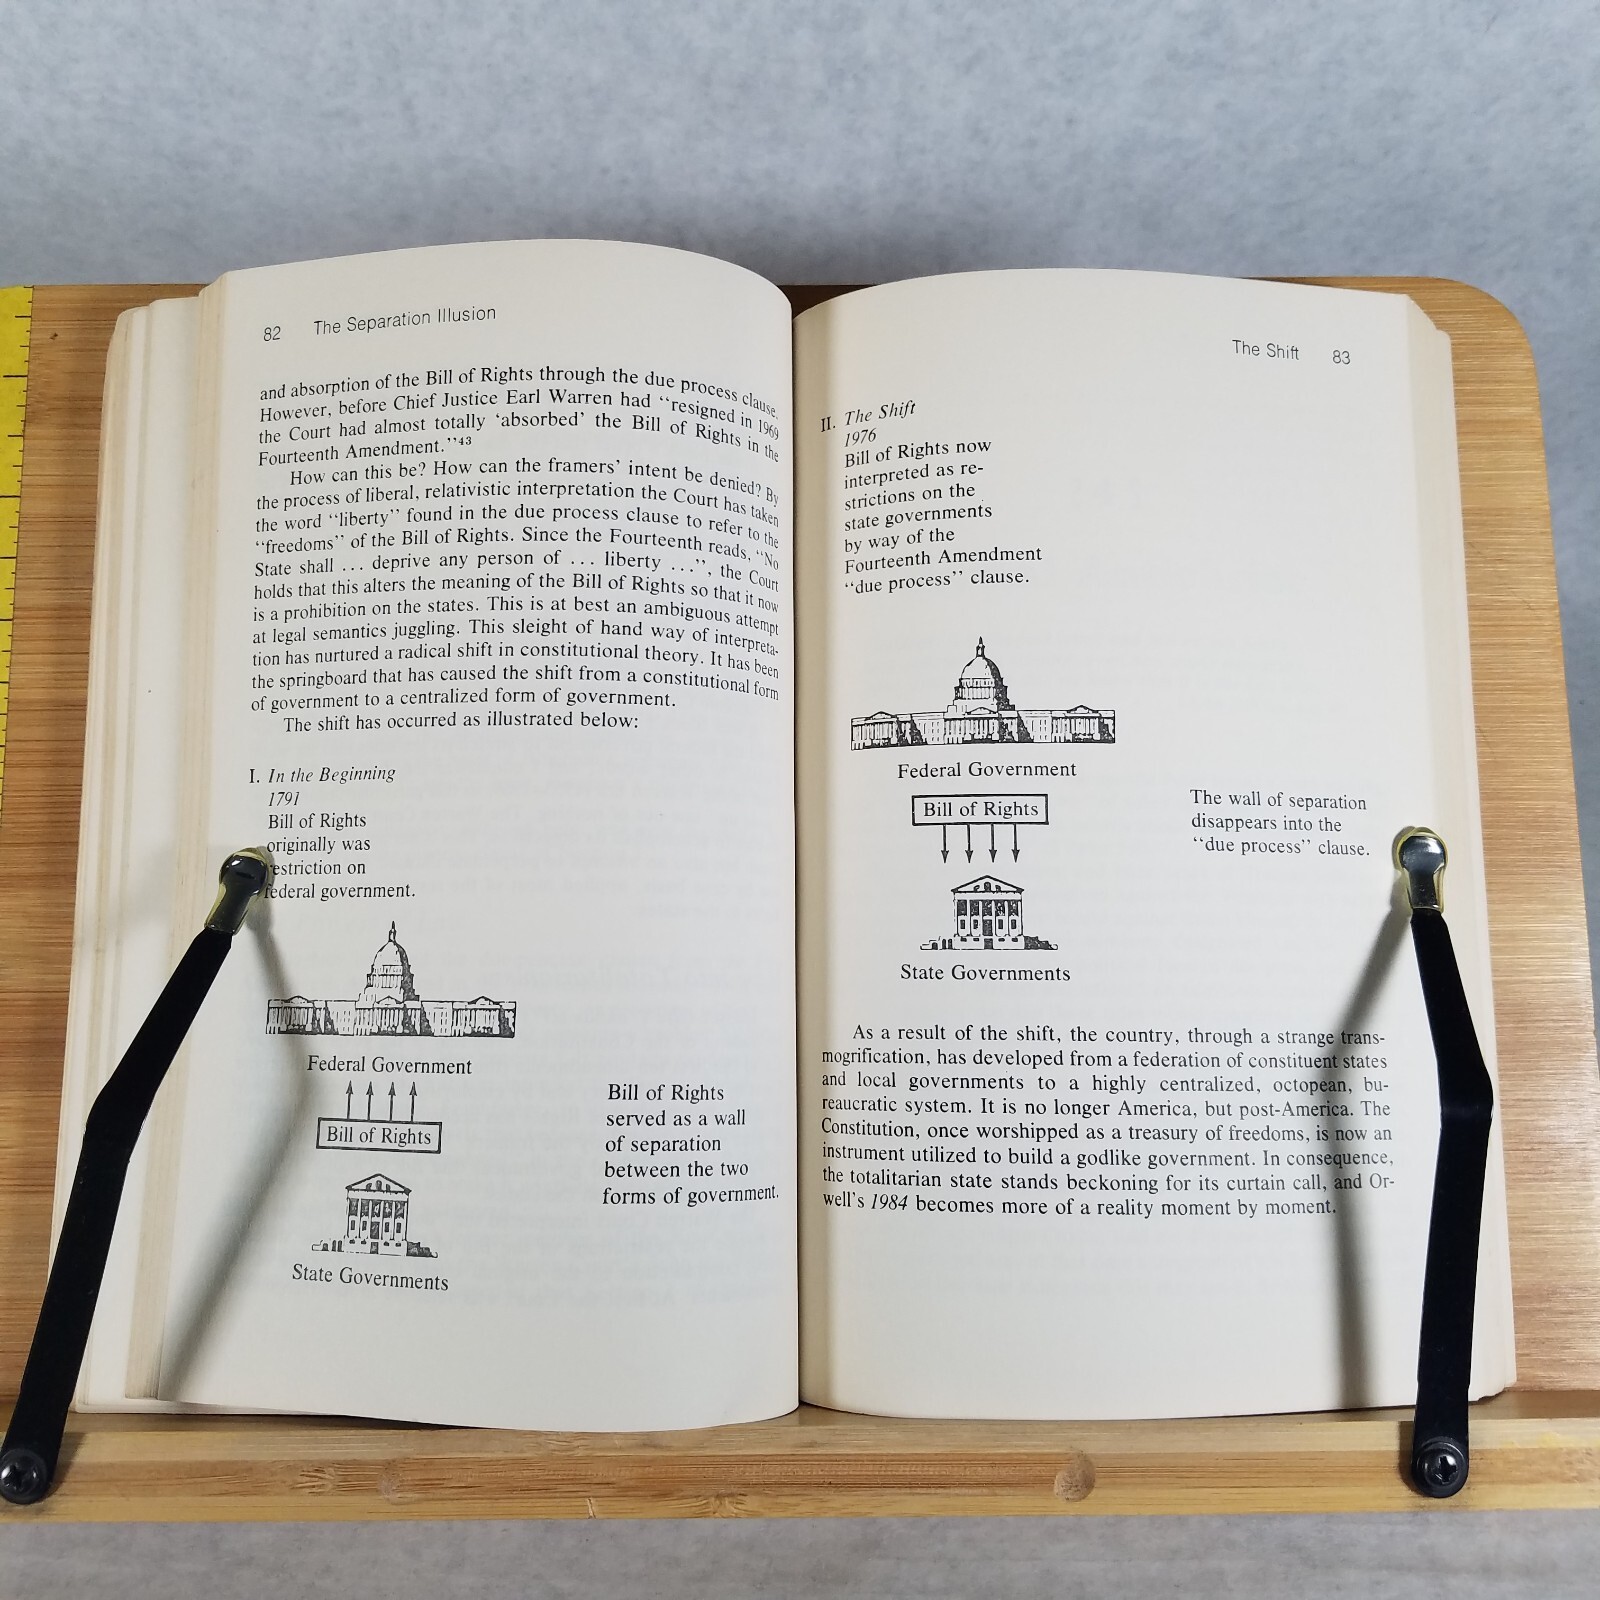 82 The Separation Illusion
and absorption of the Bill of Rights through the due process clause.
However, before Chief Justice Earl Warren had “resigned in 1969
the Court had almost totally ‘absorbed’ the Bill of Rights in the
Fourteenth Amendment.”43
How can this be? How can the framers’ intent be denied? By
the process of liberal, relativistic interpretation the Court has taken
the word “liberty” found in the due process clause to refer to the
“freedoms” of the Bill of Rights. Since the Fourteenth reads, “No
State shall ... deprive any person of ... liberty ...”, the Court
holds that this alters the meaning of the Bill of Rights so that it now
is a prohibition on the states. This is at best an ambiguous attempt
at legal semantics juggling. This sleight of hand way of interpreta-
tion has nurtured a radical shift in constitutional theory. It has been
the springboard that has caused the shift from a constitutional form
of government to a centralized form of government.
The shift has occurred as illustrated below:
I. In the Beginning
1791
Bill of Rights
originally was
estriction on
federal government.
Federal Government
Bill of Rights
State Governments
Bill of Rights
served as a wall
of separation
between the two
forms of government.
The Shift 83
II. The Shift
1976
Bill of Rights now
interpreted as re-
strictions on the
state governments
by way of the
Fourteenth Amendment
“due process” clause.
Federal Government
Bill of Rights
State Governments
The wall of separation
disappears into the
“due process” clause.
As a result of the shift, the country, through a strange trans-
mogrification, has developed from a federation of constituent states
and local governments to a highly centralized, octopean, bu-
reaucratic system. It is no longer America, but post-America. The
Constitution, once worshipped as a treasury of freedoms, is now an
instrument utilized to build a godlike government. In consequence,
the totalitarian state stands beckoning for its curtain call, and Or-
well’s 1984 becomes more of a reality moment by moment.